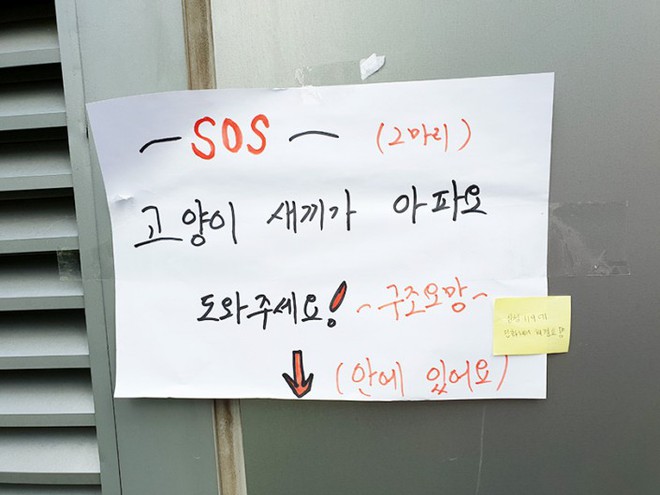 SOS (2마리)
고양이 새끼가 아파요
도와주세요! ~구조요망~
(안에 있어요)
119에